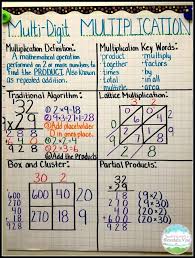 Multi-Digit MULTIPLICATION
Multiplication Definition:
A mathematical operation
performed on 2 or more numbers
to FIND the PRODUCT. Also known
as repeated addition.
Multiplication Key Words:
product
together
times
total
multiple
multiply
factors
by
in all
area
Traditional Algorithm:
32
x 29
288
① 2×9=18
② 9×3=27
③ Add placeholder
0 in ones place.
④ 2×2=4
⑤ 2×3=6
⑥ Add the Products
Lattice Multiplication:
3 2
2
9
9 2 8
Box and Cluster:
30 2
20 600 40
9 270 18
600
40
270
18
928
Partial Products:
32
x 29
18 (9×2)
270 (9×30)
40 (20×2)
600 (20×30)
928